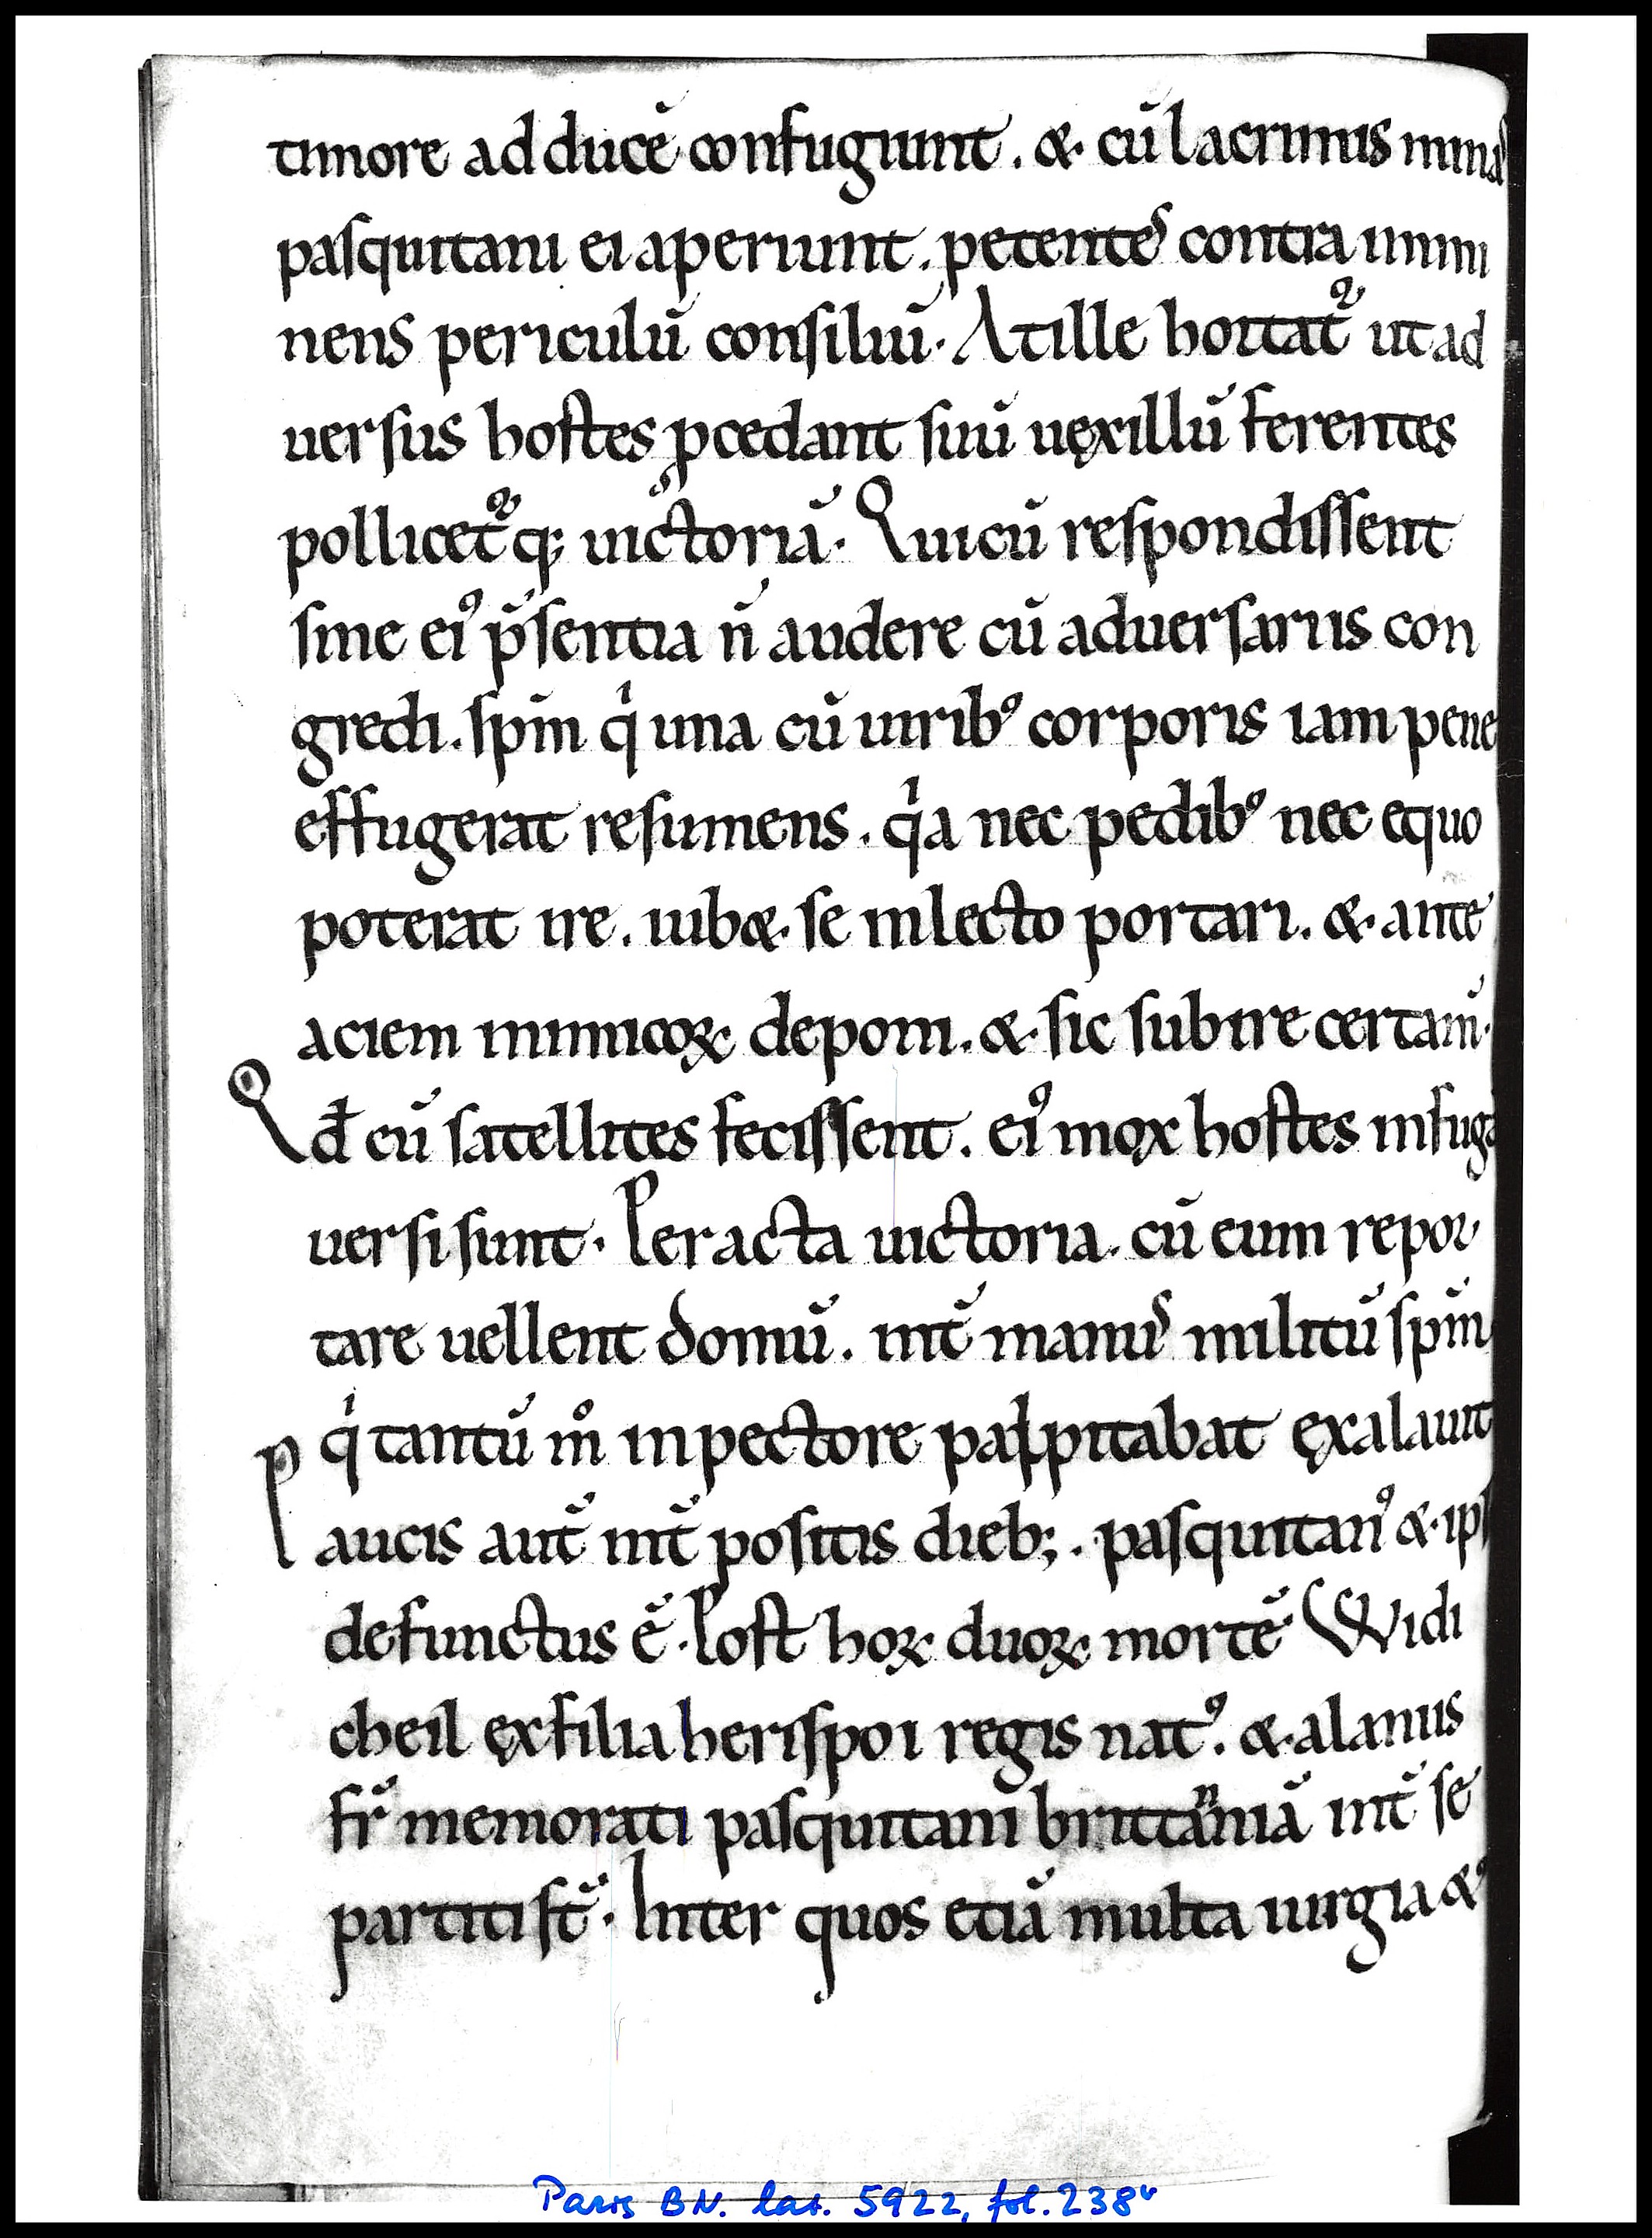 timore ad ducē confugiunt. & cū lacrimis minas
pasquitani ei aperiunt. petentes contra immi
nens periculū consiliū. At ille hortat᷑ ut ad
uersus hostes ꝓcedant suū uęxillū ferentes
pollicet᷑q; uictoriā. Qui cū respondissent
sine eiꝰ p̄sentia n̄ audere cū aduersariis con
gredi. sp̄m qͥ una cū uiribꝰ corporis iam pene
effugerat resumens. qͥa nec pedibꝰ nec equo
poterat ire. iub&. se in lecto portari. & ante
aciem inimicoꝝ deponi. & sic subire certam̄.
Qđ cū satellites fecissent. eiꝰ mox hostes in fugā
uersi sunt. Peracta uictoria. cū eum repor
tare uellent domū. int̄ manus militū sp̄m
qͥ tantū m̊ in pectore palpitabat ęxalauit
Paucis aut̄ int̄ positis dieb;. pasquitanꝰ & ips
defunctus ē. Post hoꝝ duoꝝ mortē Widi
cheil ęx filia herispoi regis natꝰ. & alanus
fr̄ memorati pasquitani brittanniā int̄ se
partiti st̄. Inter quos etiā multa iurgia &
Paris BN. lat. 5922, fol. 238ᵛ